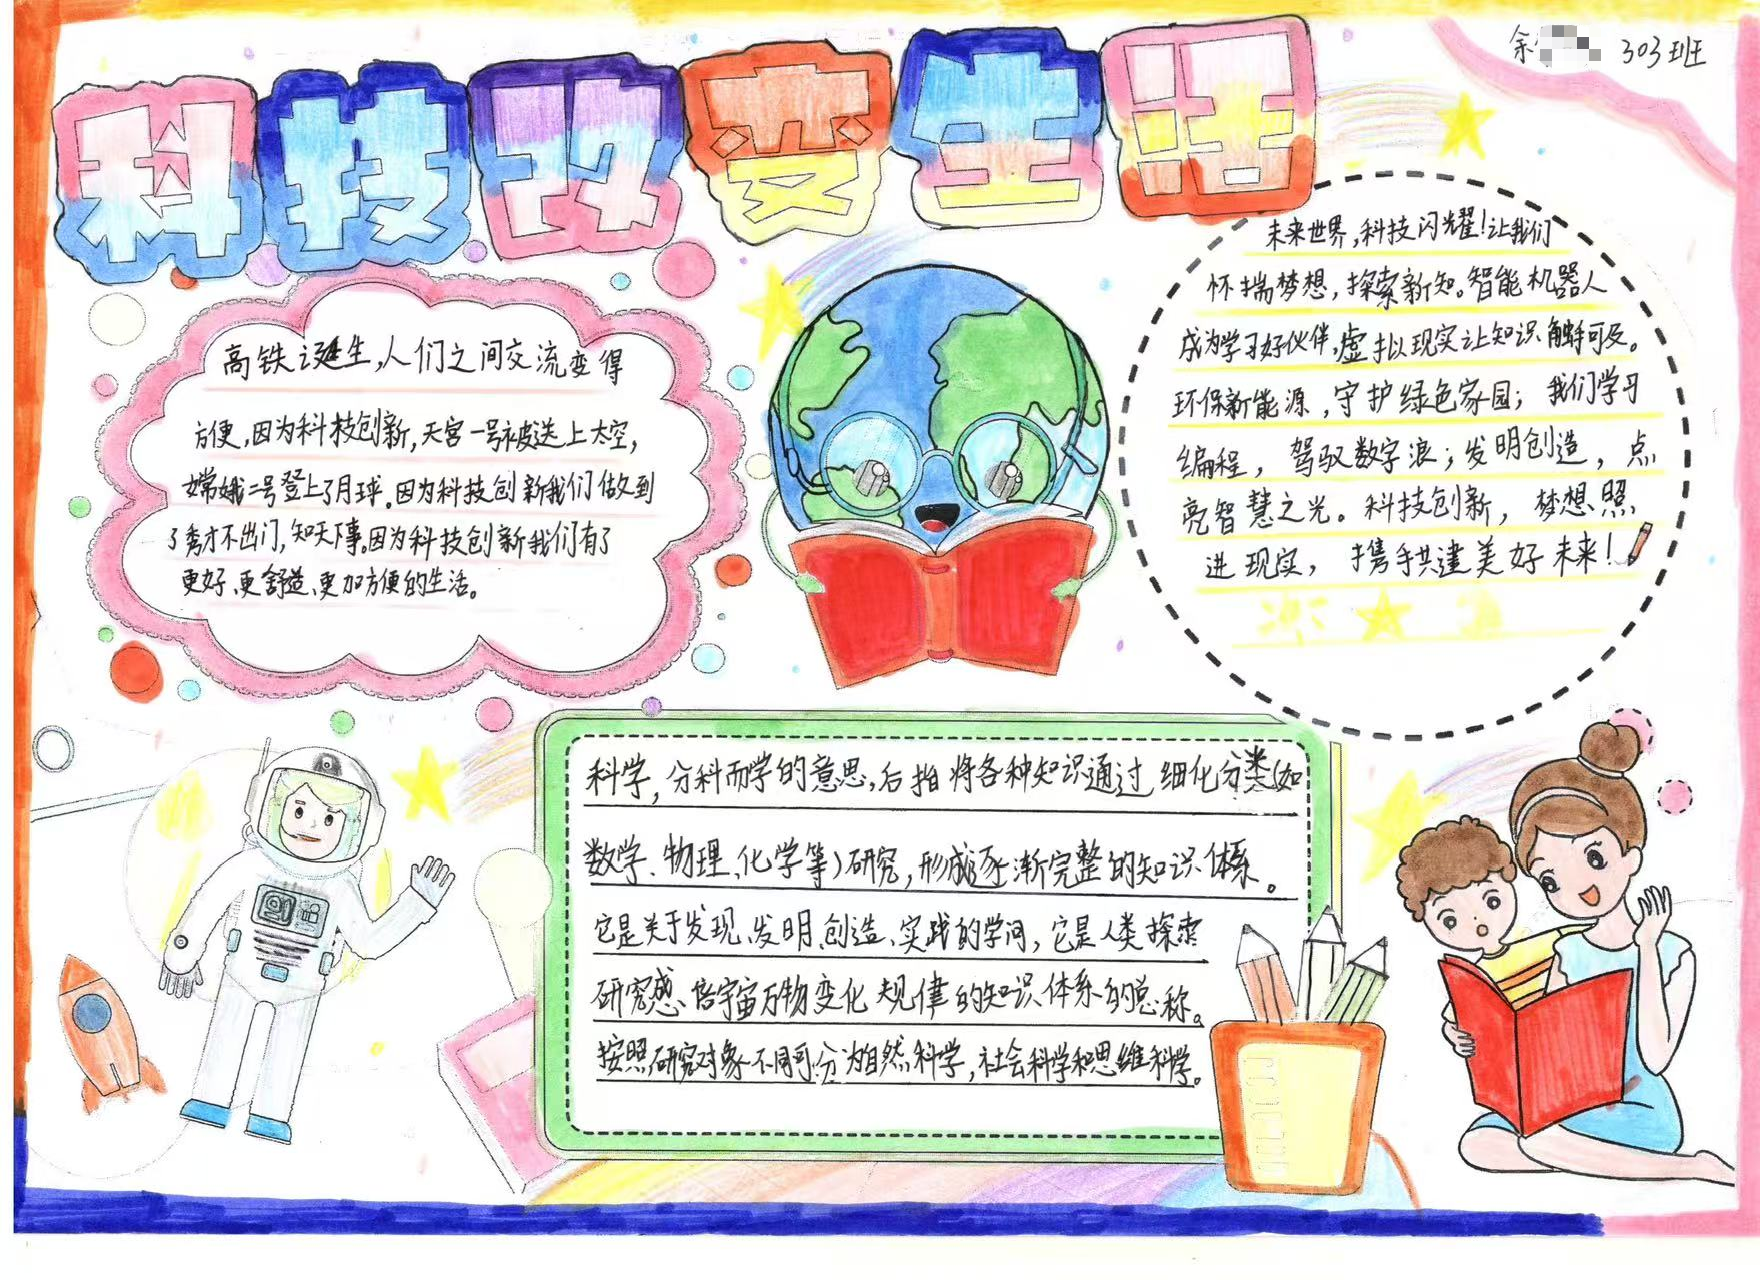 科技改变生活
余
303班
高铁诞生,人们之间交流变得
方便,因为科技创新,天宫一号被送上太空,
嫦娥二号登上了月球。因为科技创新我们做到
了秀才不出门,知天下事。因为科技创新我们有了
更好、更舒适、更加方便的生活。
未来世界,科技闪耀!让我们
怀揣梦想,探索新知。智能机器人
成为学习好伙伴,虚拟现实让知识触手可及。
环保新能源,守护绿色家园;我们学习
编程,驾驭数字浪;发明创造,点
亮智慧之光。科技创新,梦想照
进现实,携手共建美好未来!
科学,分科而学的意思,后指将各种知识通过细化分类(如
数学、物理、化学等)研究,形成逐渐完整的知识体系。
它是关于发现、发明、创造、实践的学问,它是人类探索
研究感悟宇宙万物变化规律的知识体系的总称。
按照研究对象不同可分为自然科学,社会科学和思维科学。